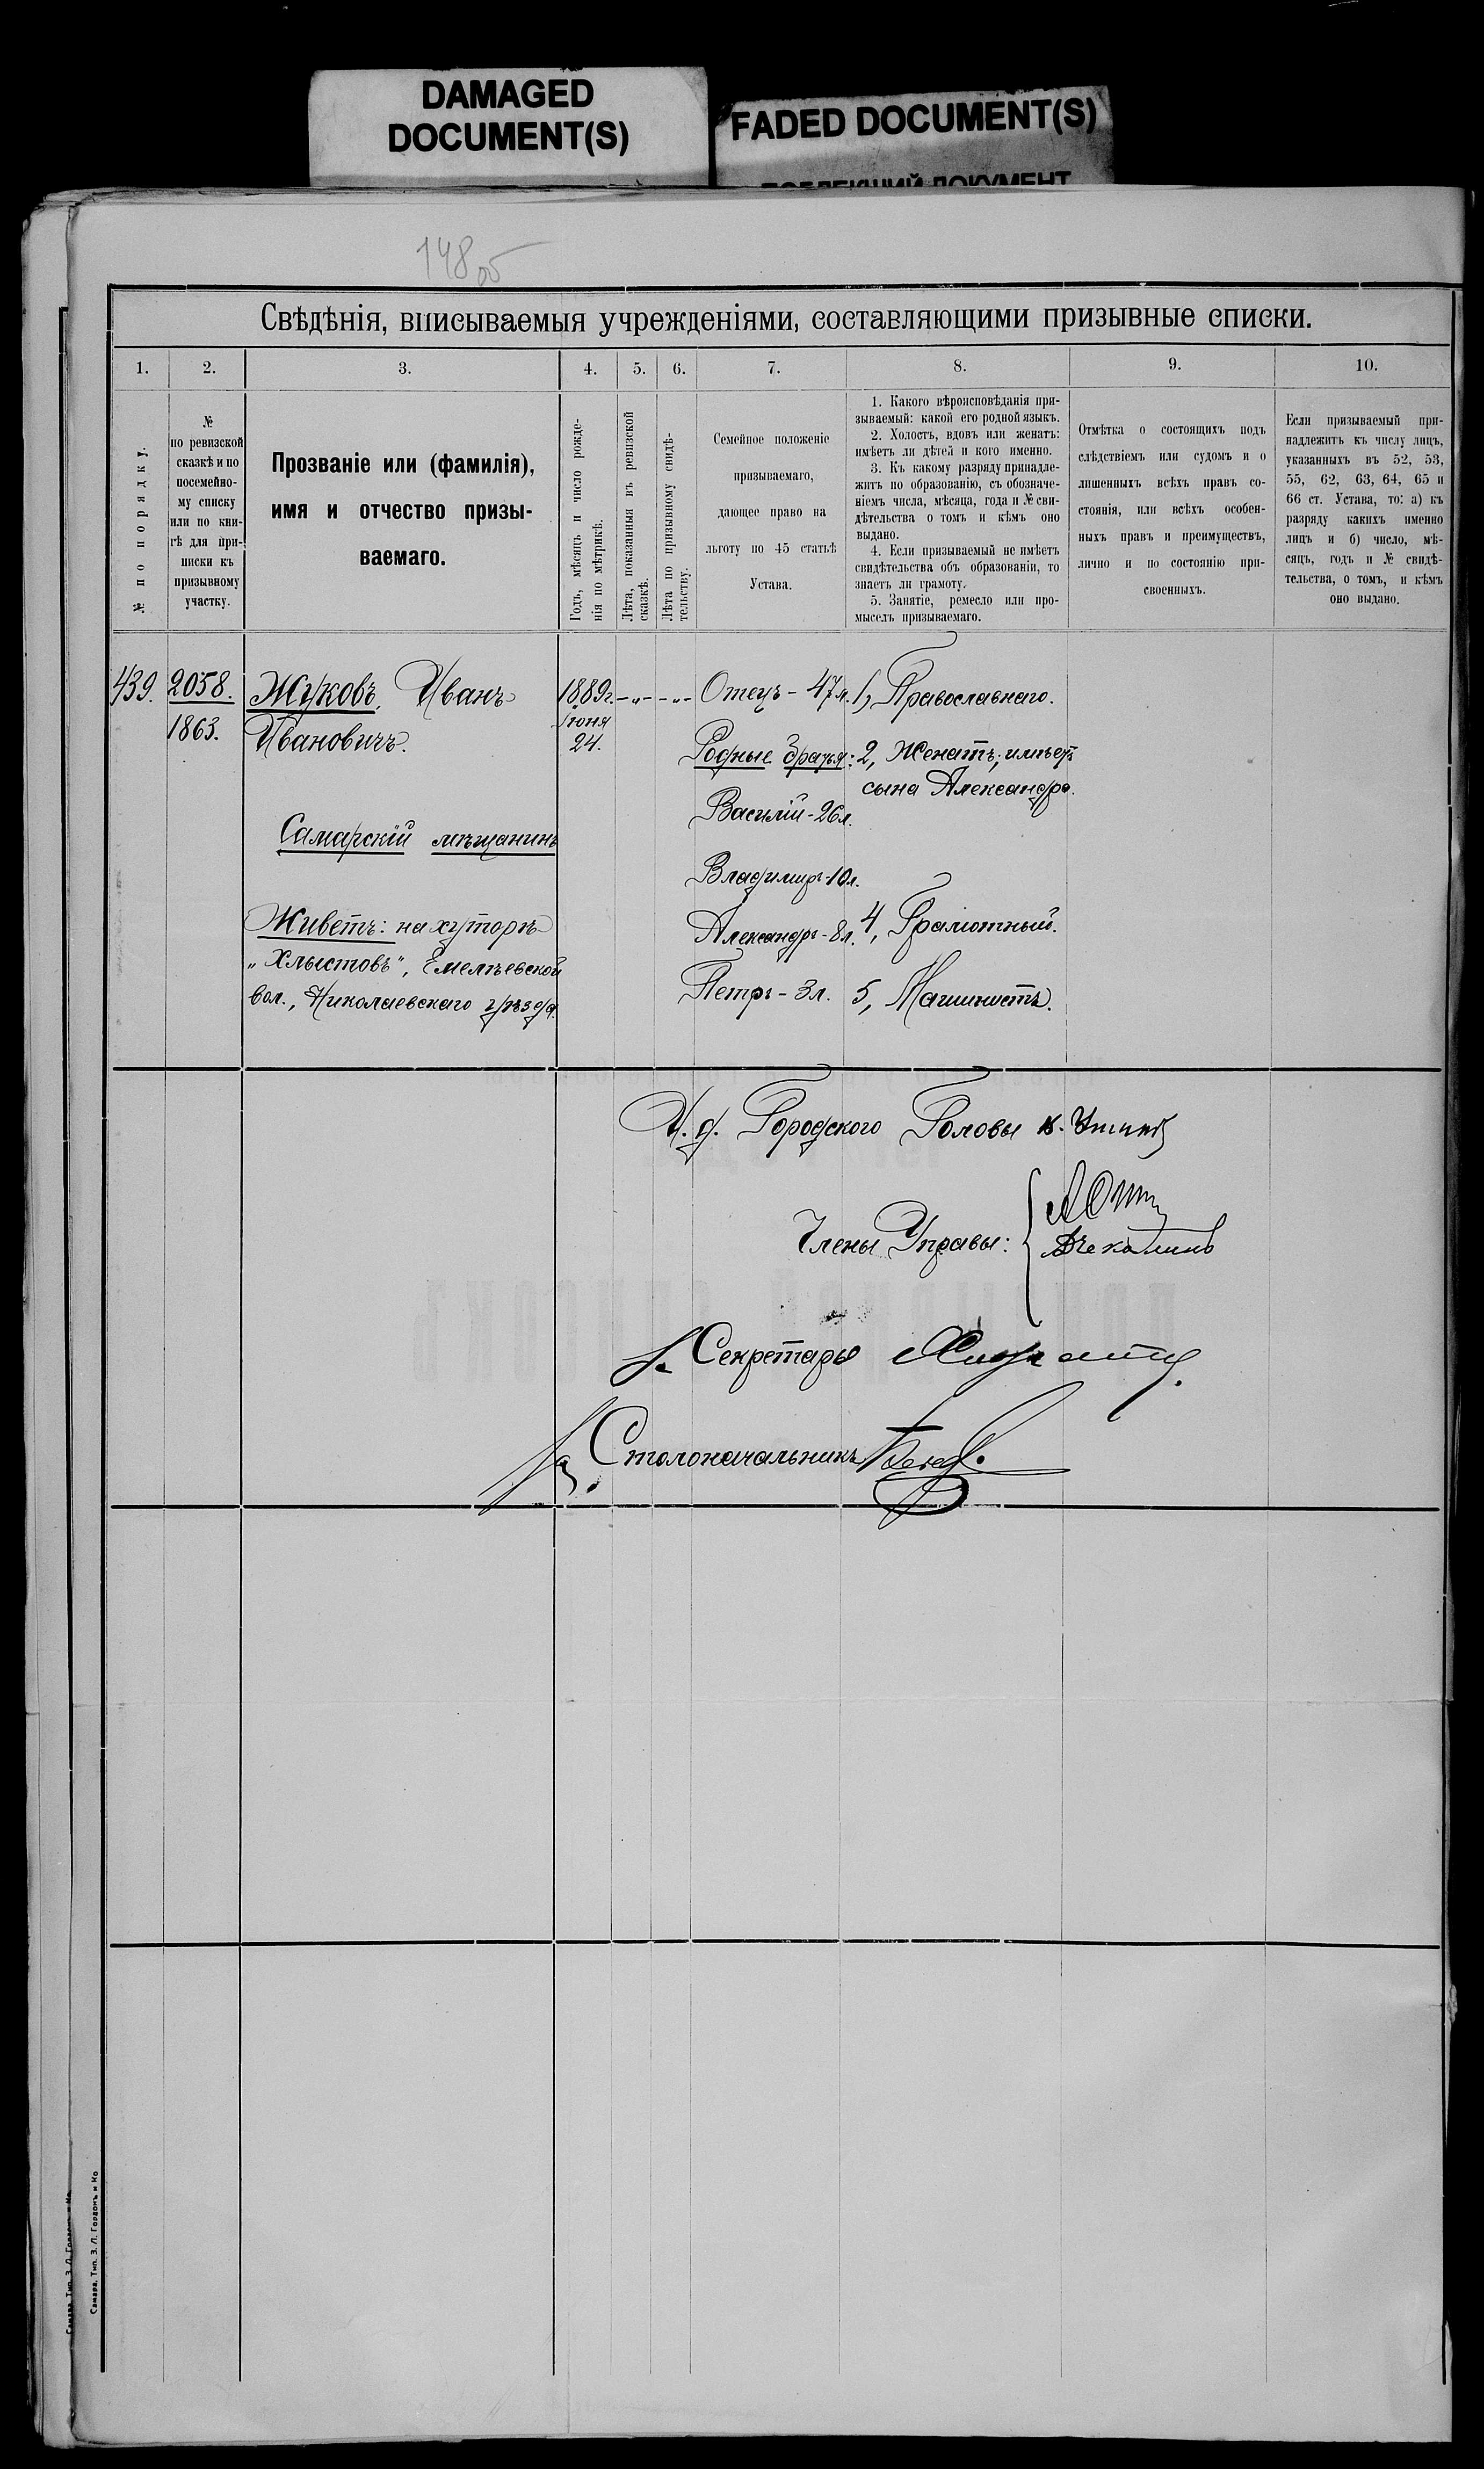 DAMAGED
DOCUMENT(S)
FADED DOCUMENT(S)
148 об
Свѣдѣнія, вписываемыя учрежденіями, составляющими призывные списки.
1.
2.
3.
4.
5.
6.
7.
8.
9.
10.
№ по порядку.
№
по ревизской
сказкѣ и по
посемейно-
му списку
или по кни-
гѣ для при-
писки къ
призывному
участку.
Прозваніе или (фамилія),
имя и отчество призы-
ваемаго.
Годъ, мѣсяцъ и число рожде-
нія по мѣтрикѣ.
Лѣта, показанныя въ ревизской
сказкѣ.
Лѣта по призывному свидѣ-
тельству.
Семейное положеніе
призываемаго,
дающее право на
льготу по 45 статьѣ
Устава.
1. Какого вѣроисповѣданія при-
зываемый: какой его родной языкъ.
2. Холостъ, вдовъ или женатъ:
имѣетъ ли дѣтей и кого именно.
3. Къ какому разряду принадле-
житъ по образованію, съ обозначе-
ніемъ числа, мѣсяца, года и № сви-
дѣтельства о томъ и кѣмъ оно
выдано.
4. Если призываемый не имѣетъ
свидѣтельства объ образованіи, то
знаетъ ли грамоту.
5. Занятіе, ремесло или про-
мыселъ призываемаго.
Отмѣтка о состоящихъ подъ
слѣдствіемъ или судомъ и о
лишенныхъ всѣхъ правъ со-
стоянія, или всѣхъ особен-
ныхъ правъ и преимуществъ,
лично и по состоянію при-
своенныхъ.
Если призываемый при-
надлежитъ къ числу лицъ,
указанныхъ въ 52, 53,
55, 62, 63, 64, 65 и
66 ст. Устава, то: а) къ
разряду какихъ именно
лицъ и б) число, мѣ-
сяцъ, годъ и № свидѣ-
тельства, о томъ, и кѣмъ
оно выдано.
439.
2058.
1863.
Жуковъ, Иванъ
Ивановичъ.
Самарскій мѣщанинъ
Живетъ: на хуторѣ
„Хлыстовъ", Емельевской
вол., Николаевскаго уѣзда.
1889г.
Іюня
24.
-„-
-„-
Отецъ - 47л.
Родные братья:
Василій - 26л.
Владимиръ - 10л.
Александръ - 8л.
Петръ - 3л.
1, Православнаго.
2, Женатъ; имѣетъ
сына Александра.
4, Грамотный.
5, Машинистъ.
И. д. Городского Головы
Члены Управы:
Чекалинъ
Секретарь
За Столоначальникъ
Самара, Тип. З. Л. Гордонъ и Ко